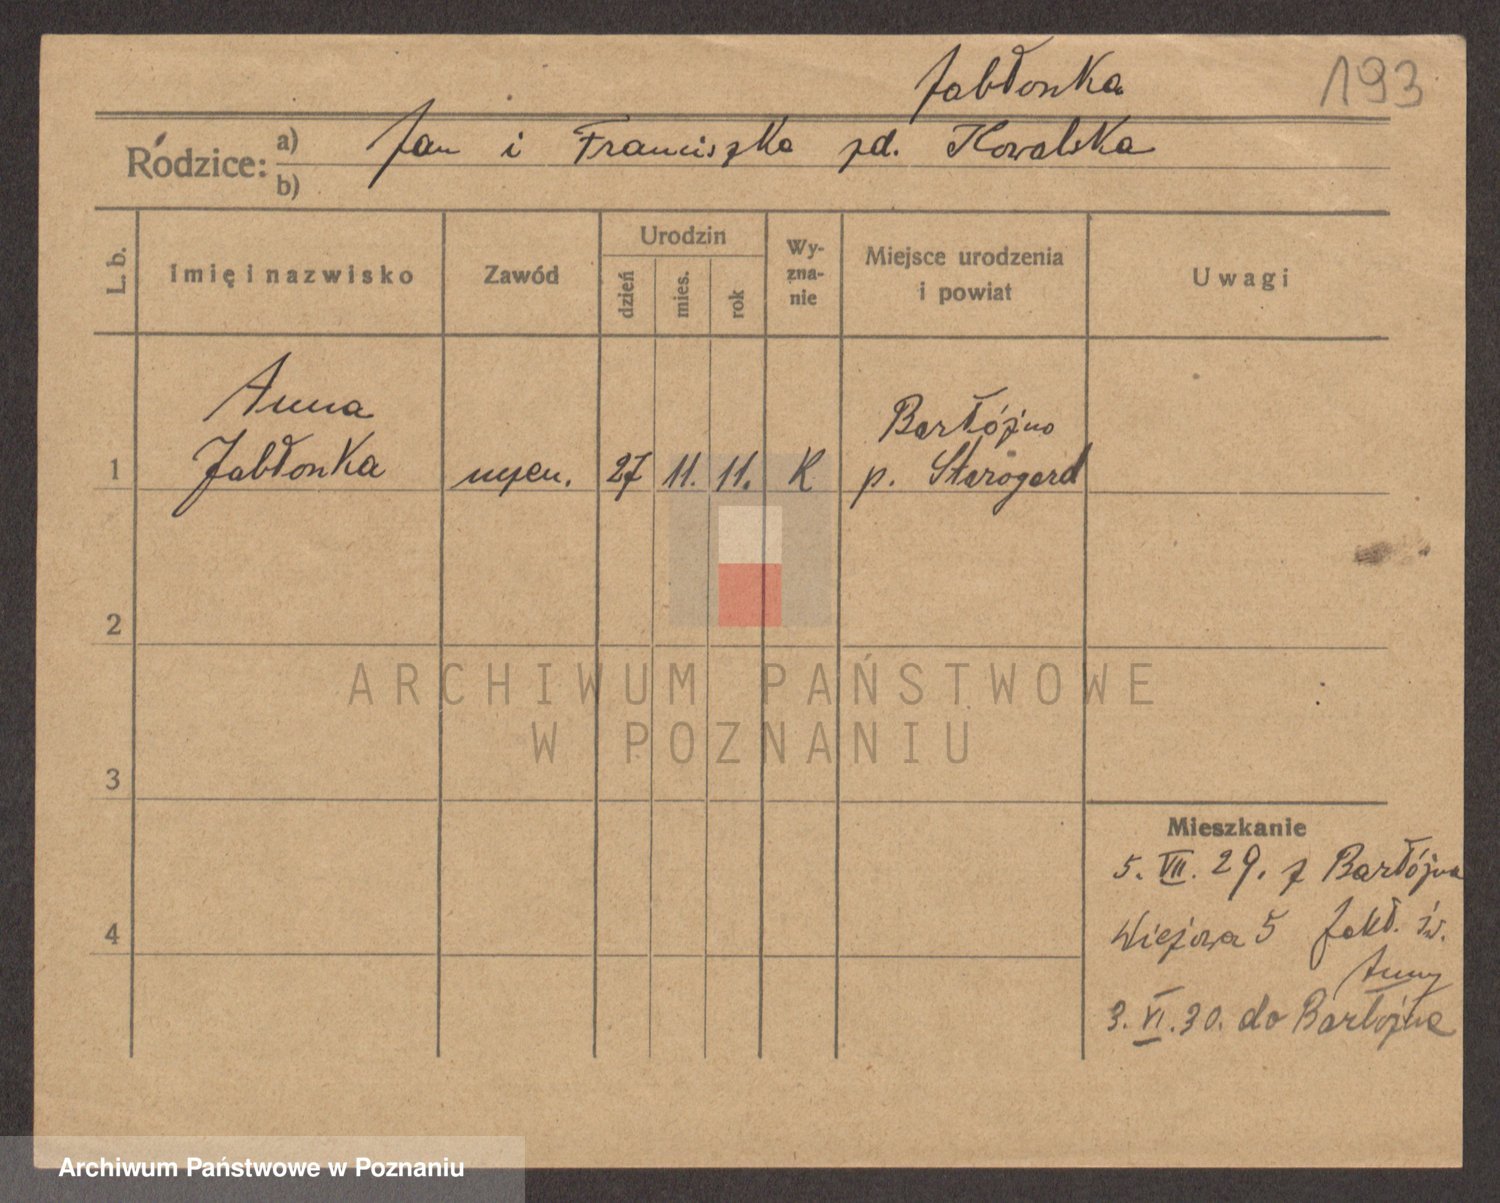 Jabłonka
193
Rodzice:
a) Jan i Franciszka zd. Kowalska
b)
L. b.
Imię i nazwisko
Zawód
Urodzin
dzień
mies.
rok
Wy-
zna-
nie
Miejsce urodzenia
i powiat
Uwagi
Anna
Barłóżno
1 Jabłonka uczen. 27 11. 11. K p. Starogard
2
ARCHIWUM PAŃSTWOWE
W POZNANIU
3
Mieszkanie
5. VII. 29. z Barłóżna
4
Wiejowa 5 Zakł. św.
Anny
3. VI. 30. do Barłóżna
Archiwum Państwowe w Poznaniu